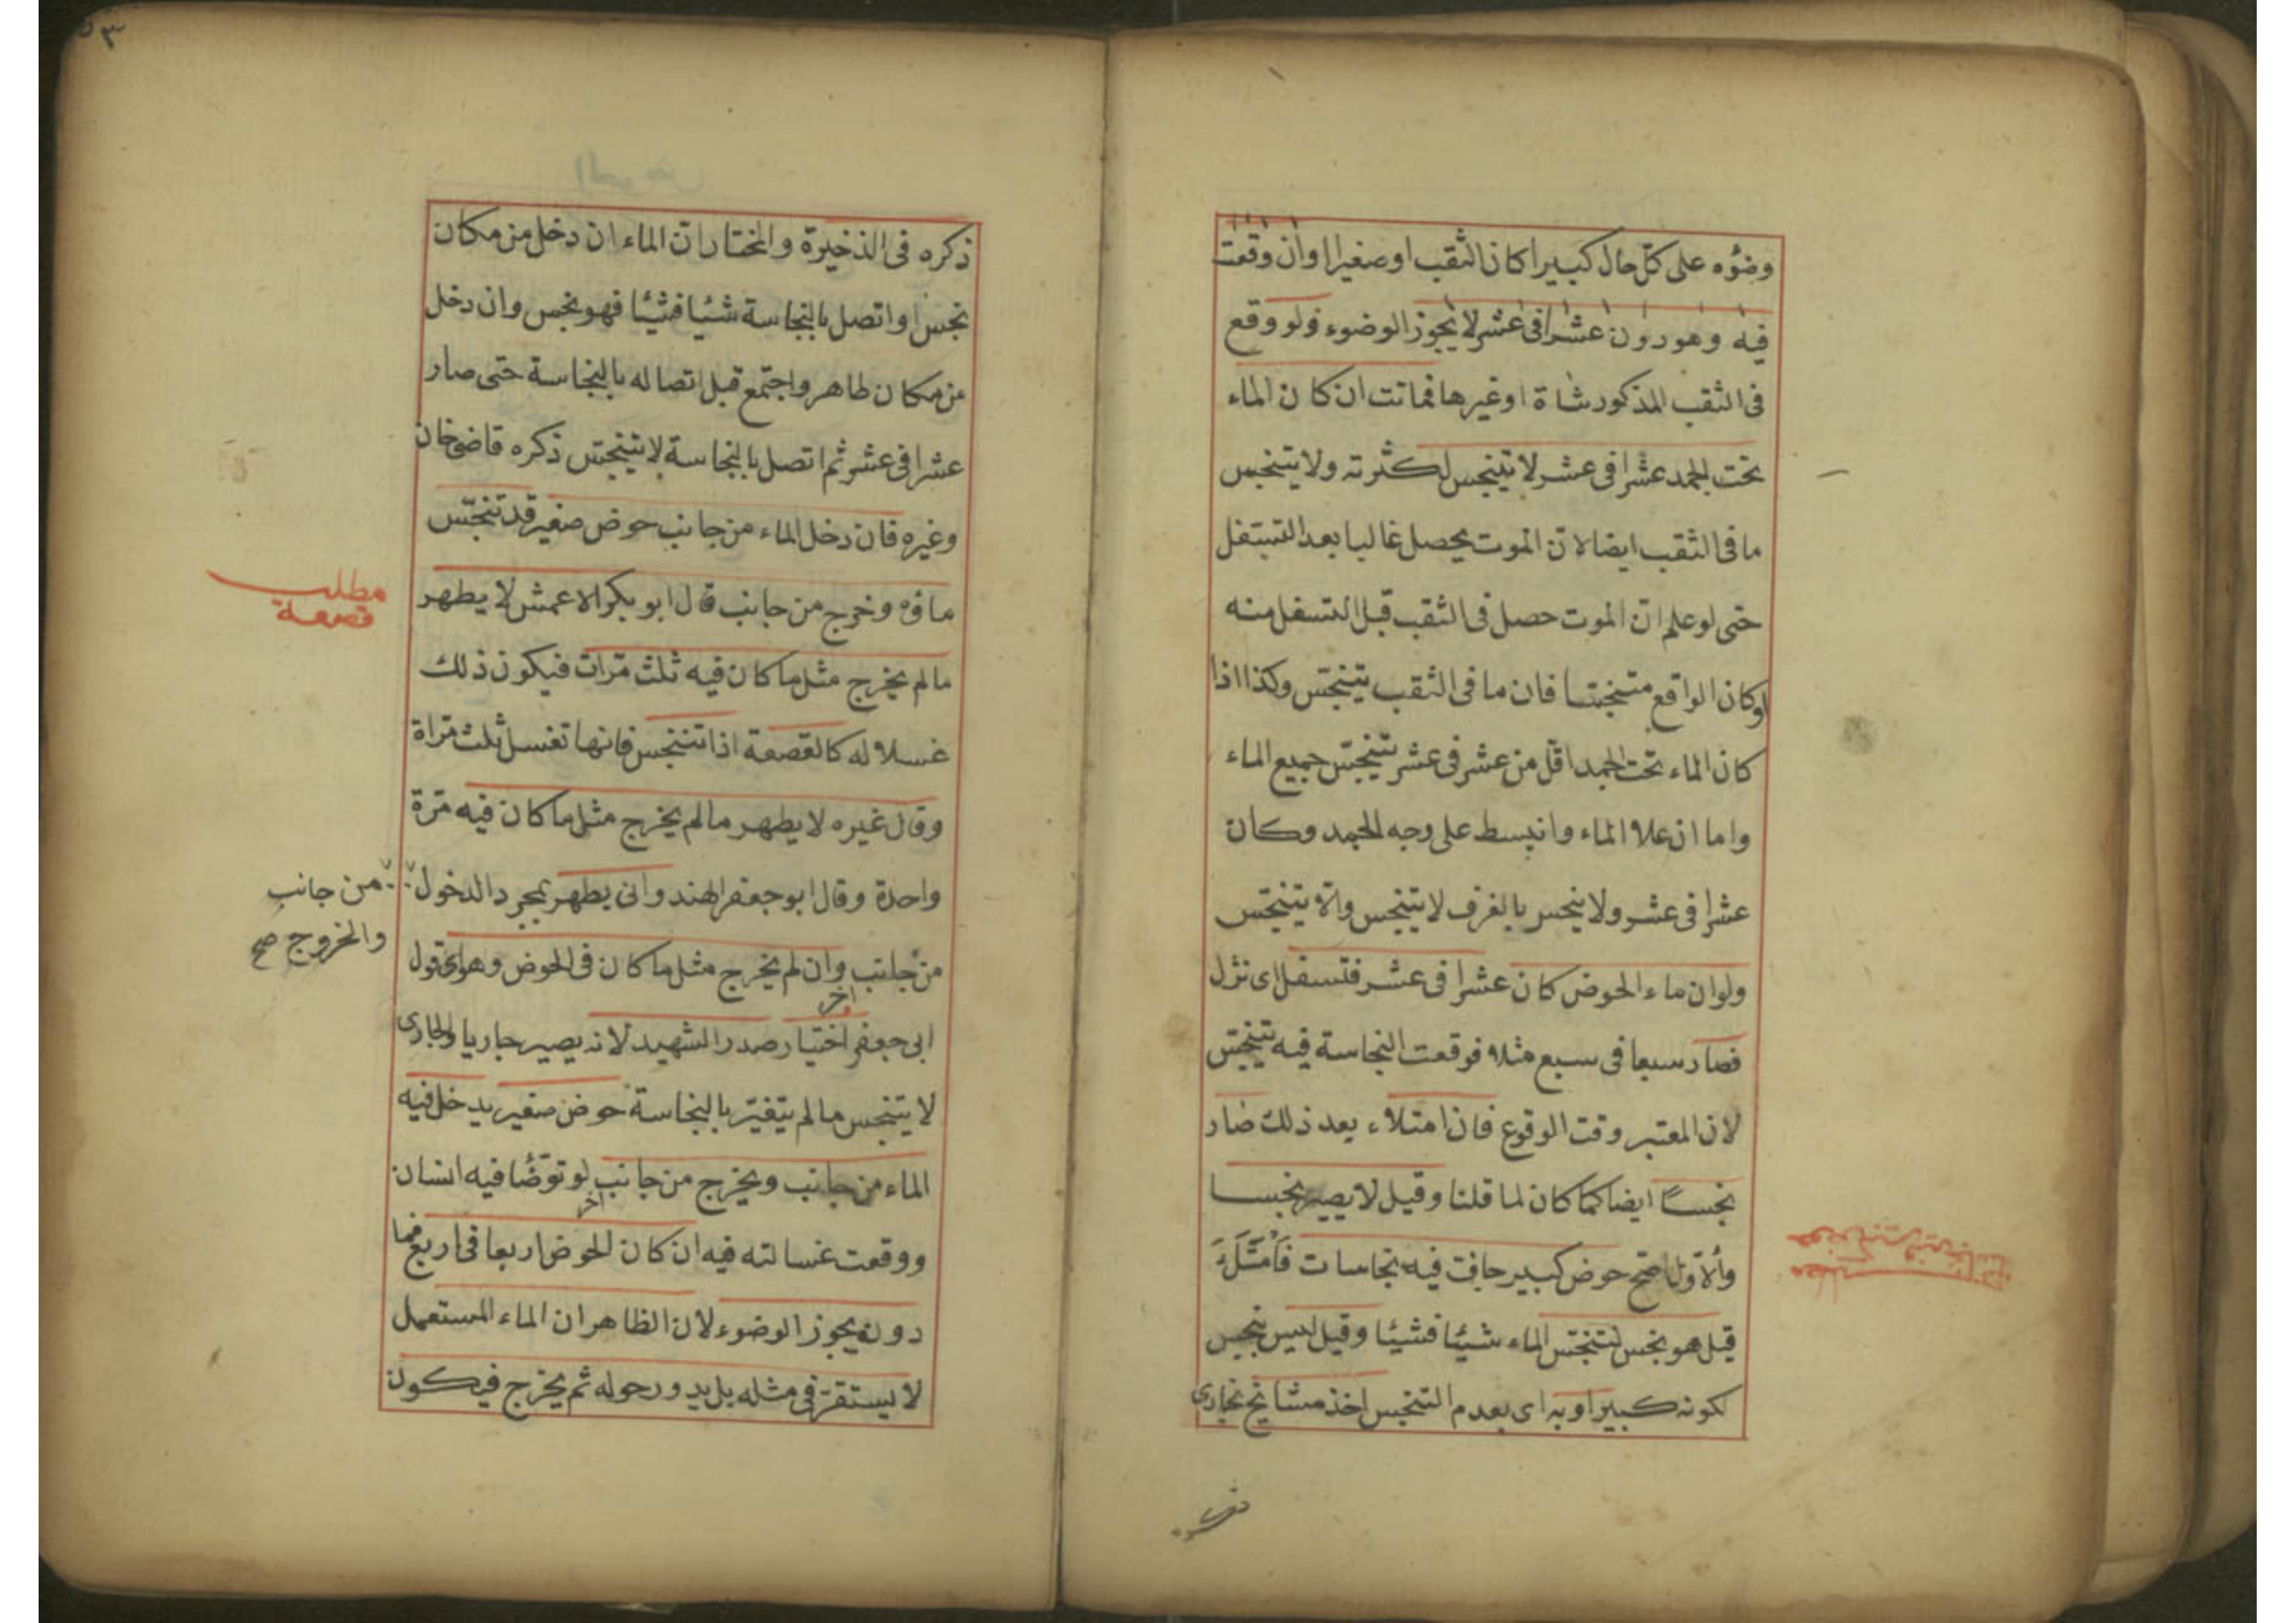 وضؤه على كل حال كبيرا كان الثقب او صغيرا وان وقعت
فيه وهو دون عشرا فى عشر لا يجوز الوضوء فلو وقع
فى الثقب المذكور شاة او غيرها فماتت ان كان الماء
تحت الجمد عشرا فى عشر لا يتنجس لكثرته ولا يتنجس
ما فى الثقب ايضا لان الموت يحصل غالبا بعد التسفل
حتى لو علم ان الموت حصل فى الثقب قبل التسفل منه
او كان الواقع متنجسا فان ما فى الثقب يتنجس وكذا اذا
كان الماء تحت الجمد اقل من عشر فى عشر يتنجس جميع الماء
واما ان علا الماء وانبسط على وجه الجمد وكان
عشرا فى عشر ولا ينحسر بالغرف لا يتنجس والا يتنجس
ولو ان ماء الحوض كان عشرا فى عشر فتسفل اى نزل
فصار سبعا فى سبع مثلا فوقعت النجاسة فيه يتنجس
لان المعتبر وقت الوقوع فان امتلاء بعد ذلك صار
نجسا ايضا كما كان لما قلنا وقيل لا يصير نجسا
والاول اصح حوض كبير جافت فيه نجاسات فامتلء
قيل هو نجس لتنجس الماء شيئا فشيئا وقيل ليس بنجس
لكونه كبيرا وبه اى بعدم التنجس اخذ مشايخ بخارى
٥٣
ذكره فى الذخيرة والمختار ان الماء ان دخل من مكان
نجس او اتصل بالنجاسة شيئا فشيئا فهو نجس وان دخل
من مكان طاهر واجتمع قبل اتصاله بالنجاسة حتى صار
عشرا فى عشر ثم اتصل بالنجاسة لا يتنجس ذكره قاضى خان
وغيره فان دخل الماء من جانب حوض صغير قد تنجس
ماؤه وخرج من جانب قال ابو بكر الاعمش لا يطهر
مطلب
قصعة
مالم يخرج مثل ما كان فيه ثلث مرات فيكون ذلك
غسلا له كالقصعة اذا تنجس فانها تغسل ثلث مراة
وقال غيره لا يطهر مالم يخرج مثل ما كان فيه مرة
واحدة وقال ابو جعفر الهندوانى يطهر بمجرد الدخول
من جانب
والخروج صح
من جانب وان لم يخرج مثل ما كان فى الحوض وهو اى قول
اخر
ابى جعفر اختيار صدر الشهيد لانه يصير جاريا والجارى
لا يتنجس مالم يتغير بالنجاسة حوض صغير يدخل فيه
الماء من جانب ويخرج من جانب لو توضأ فيه انسان
اخر
ووقعت غسالته فيه ان كان الحوض اربعا فى اربع فما
دون يجوز الوضوء لان الظاهر ان الماء المستعمل
لا يستقر فى مثله بل يدور حوله ثم يخرج فيكون